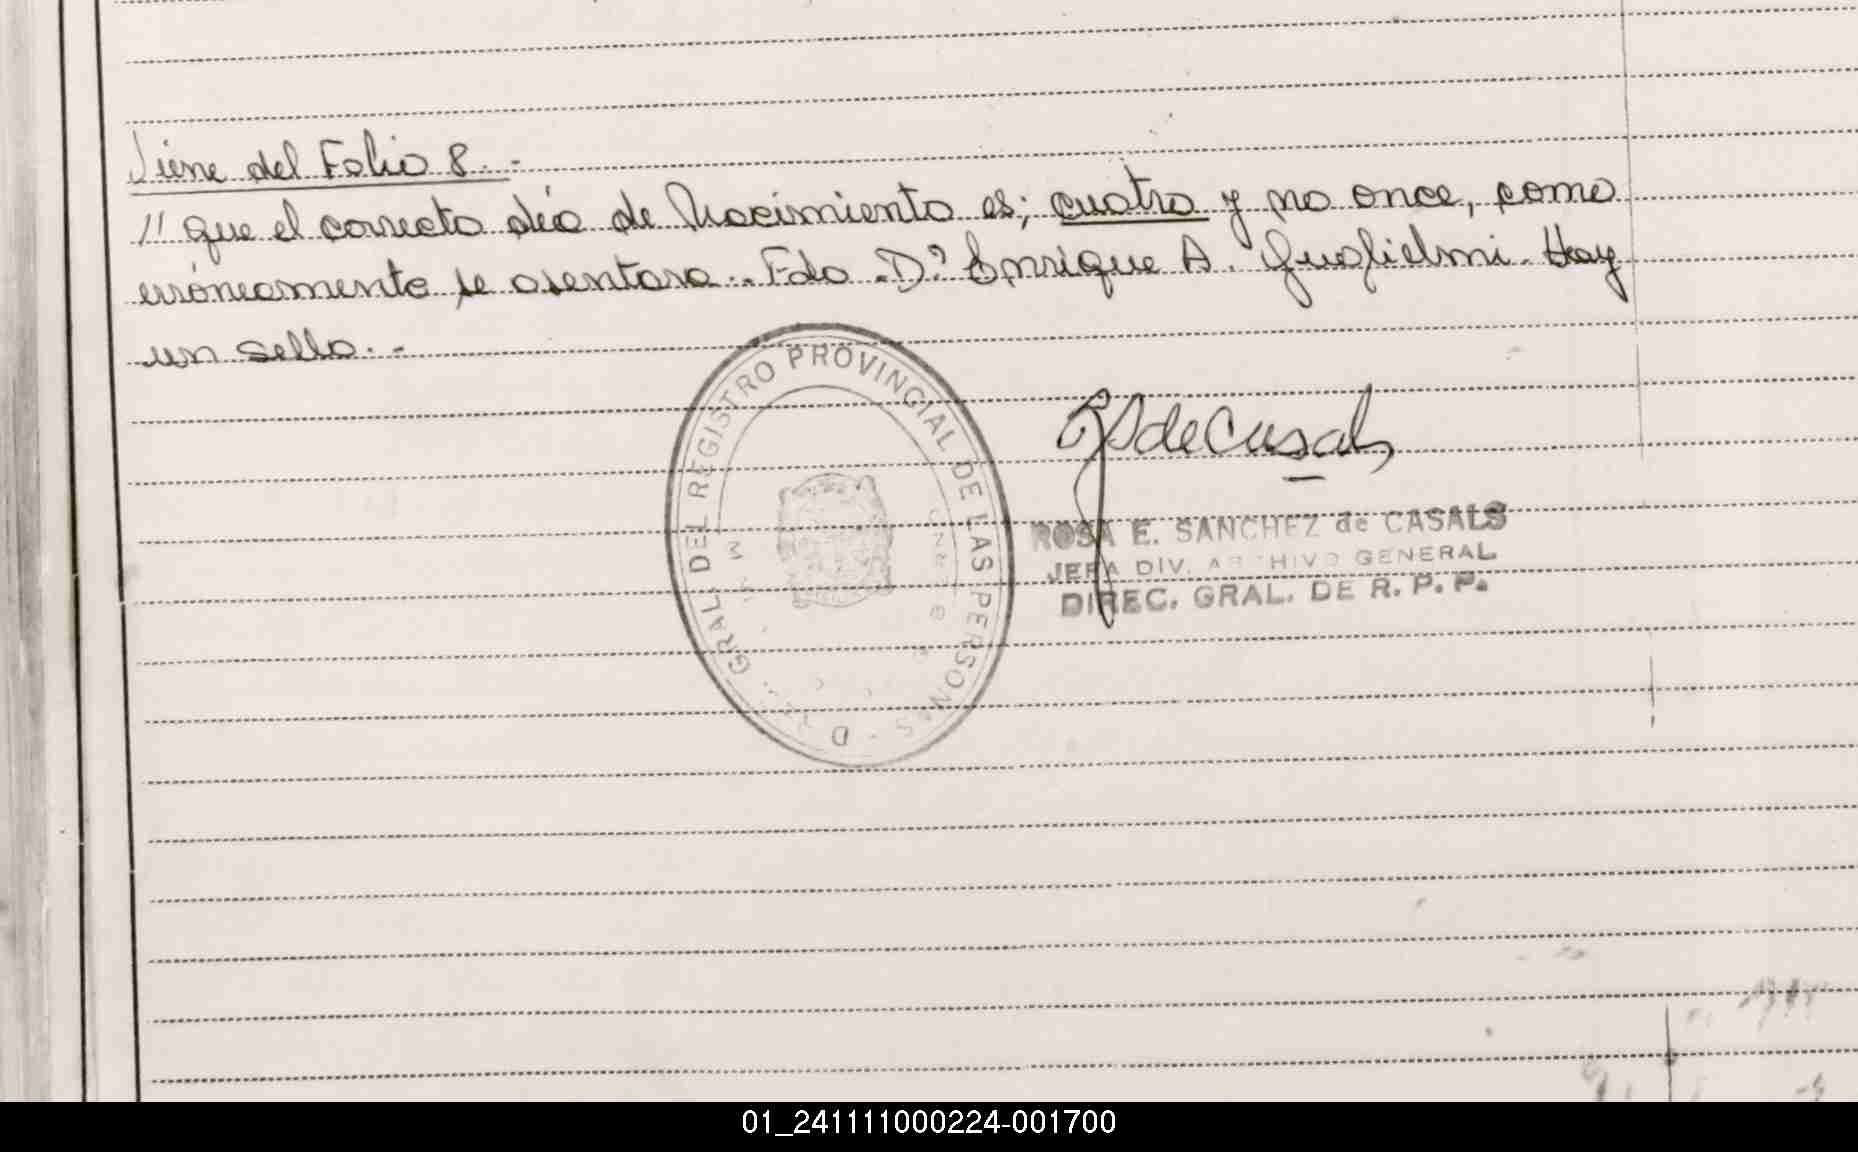 Viene del Folio 8.-
// que el correcto día de Nacimiento es; cuatro y no once, como
erróneamente se asentara.. Fdo. Dº Enrique A. Guglielmi. Hay
un sello.-
GRAL. DEL REGISTRO PROVINCIAL DE LAS PERSONAS - D
RSdeCasals
ROSA E. SANCHEZ de CASALS
JEFA DIV. ARCHIVO GENERAL
DIREC. GRAL. DE R. P. P.
01_241111000224-001700